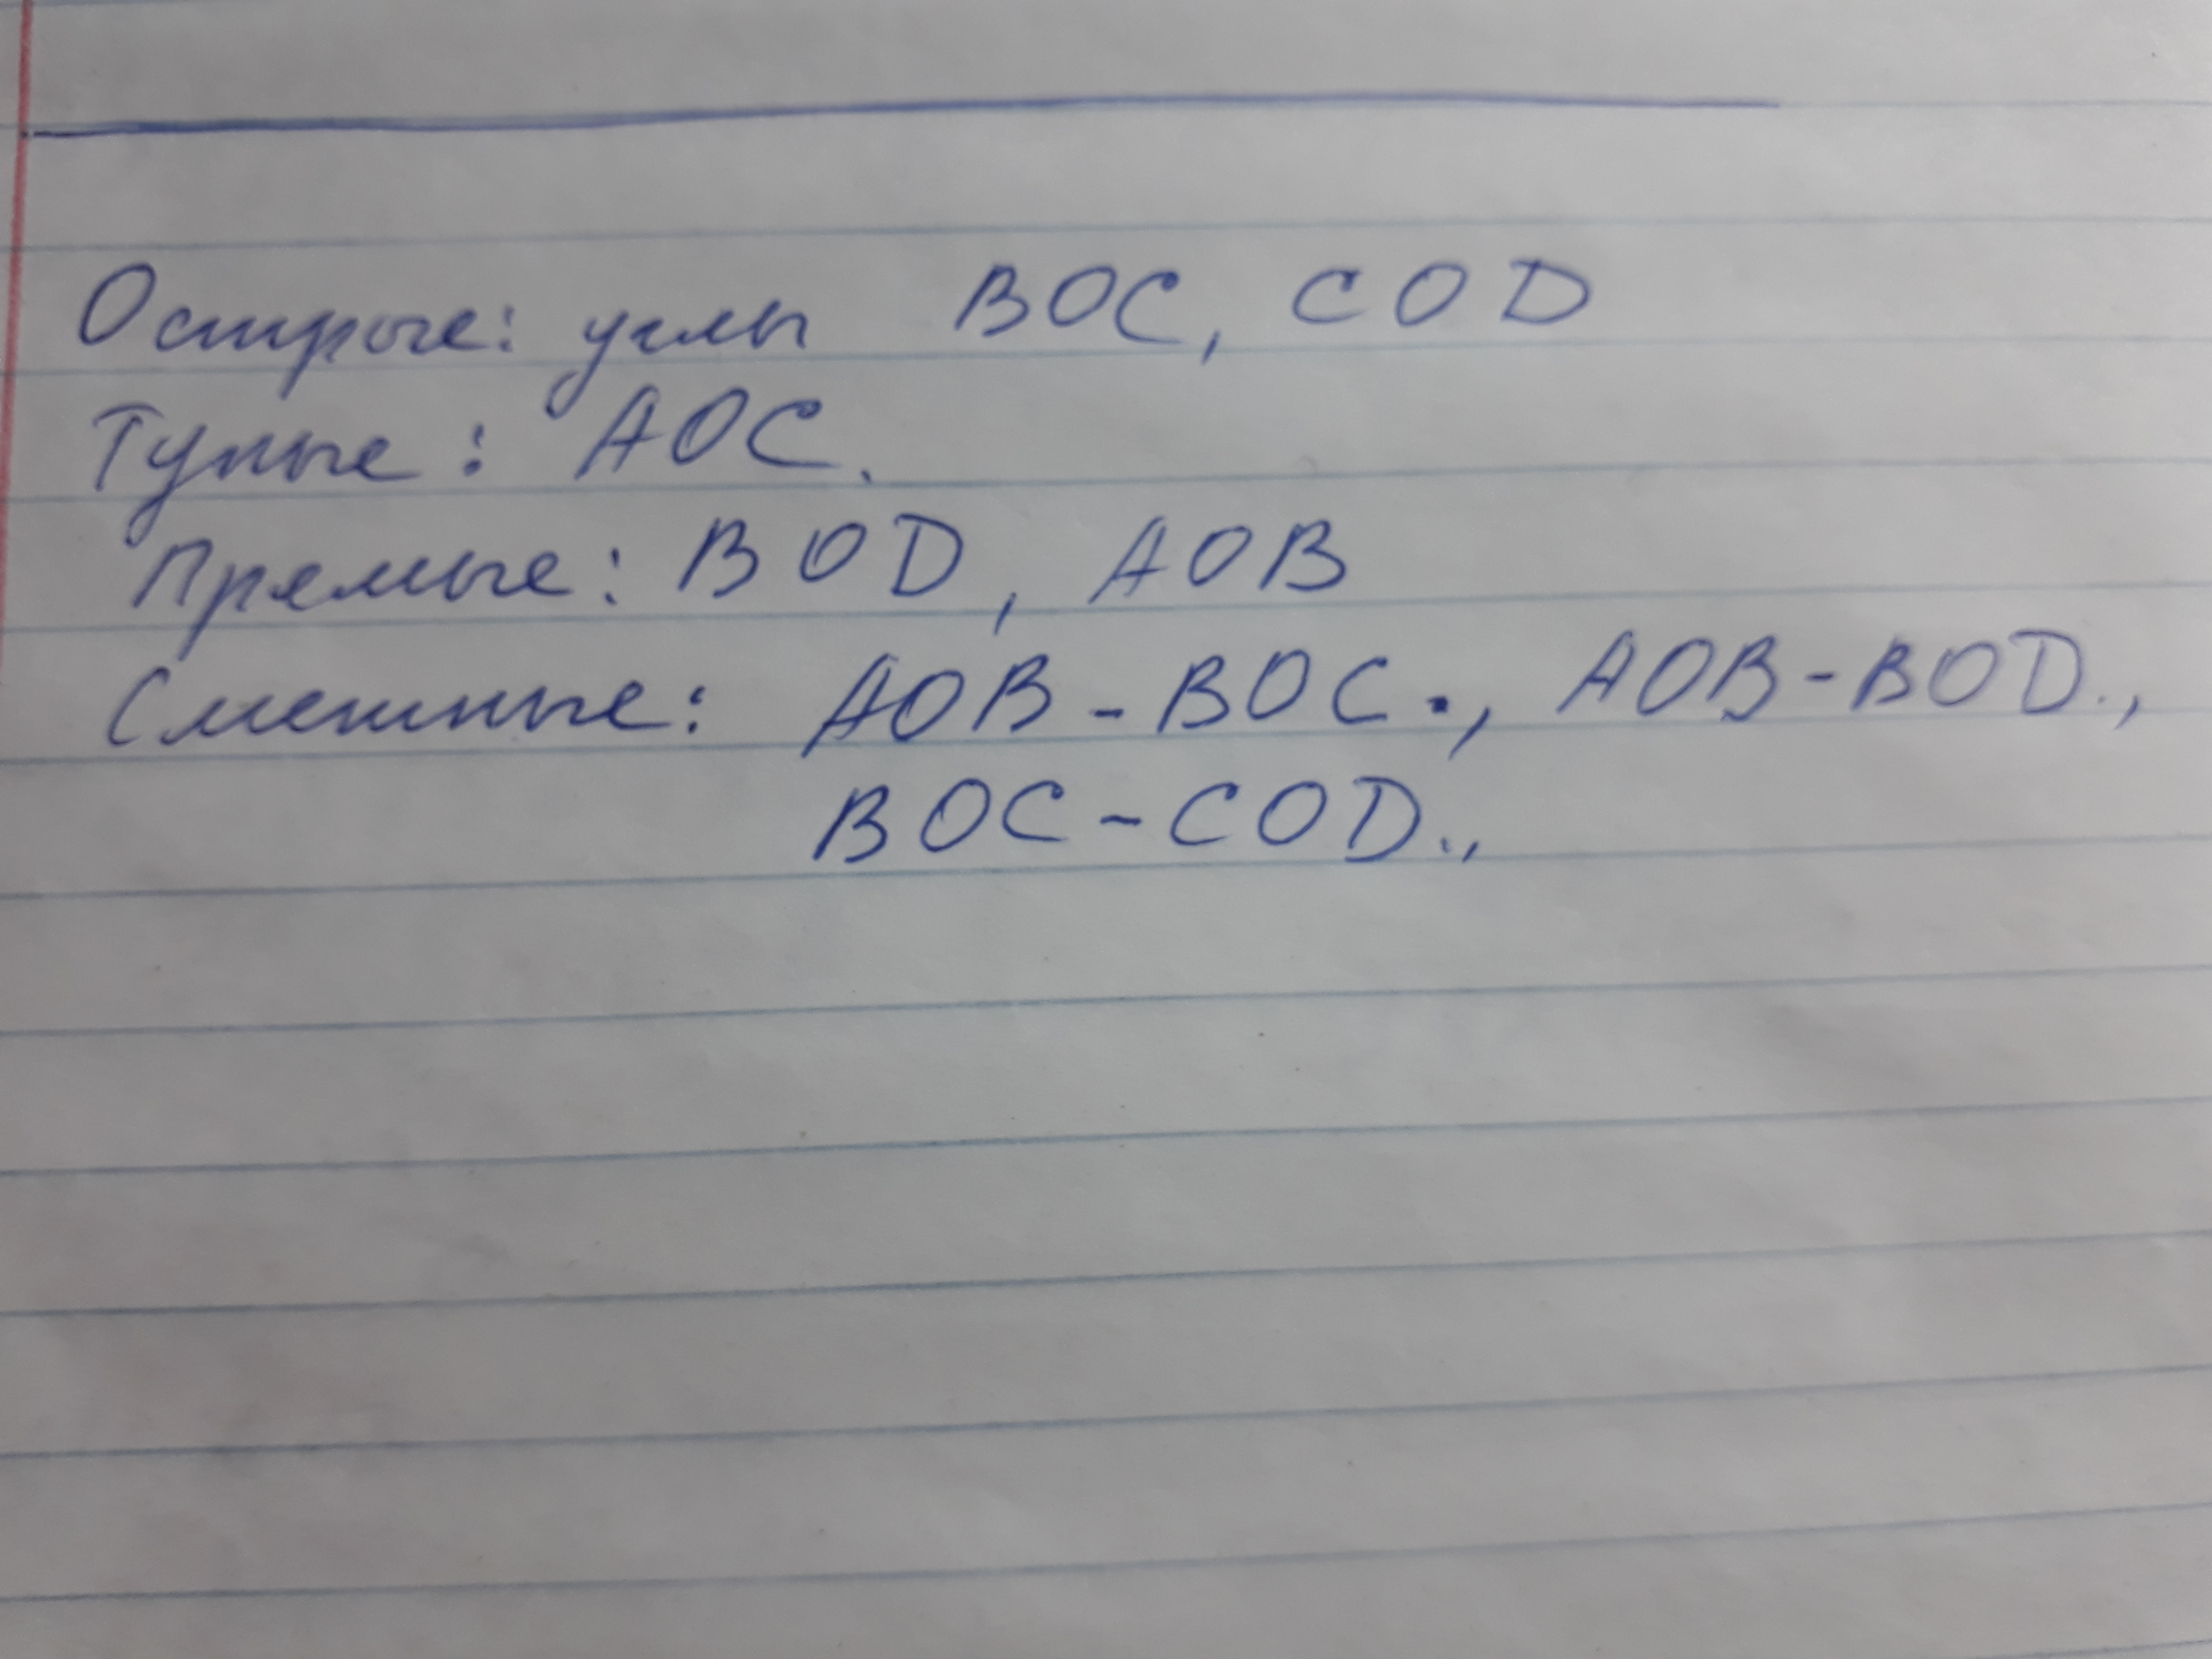 Острые: углы BOC, COD
Тупые: AOC.
Прямые: BOD, AOB
Смежные: AOB - BOC., AOB - BOD.,
BOC - COD.,